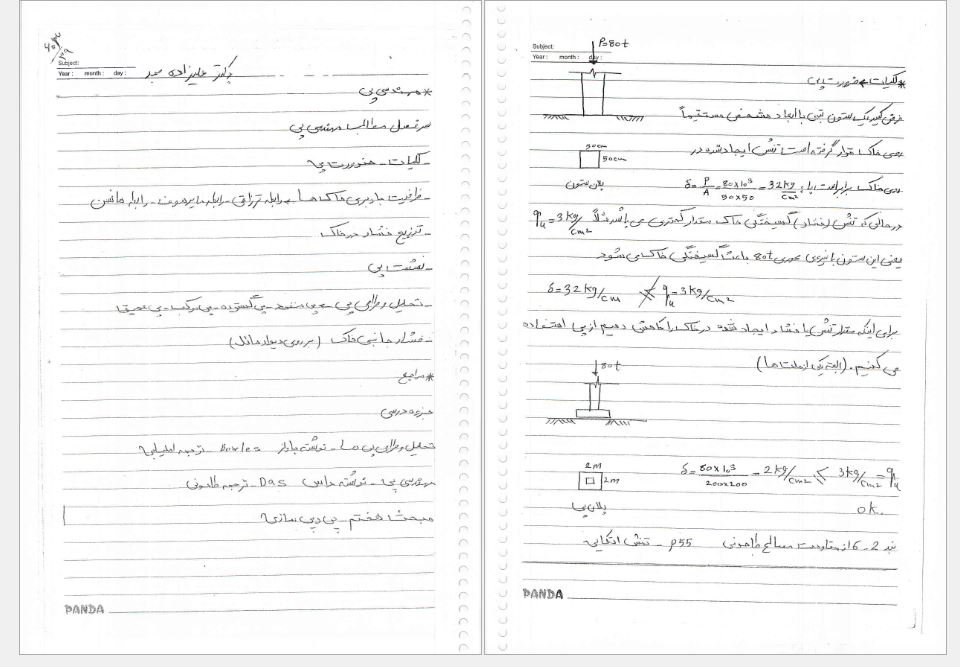 Subject:
Year : month : day :
دکتر علیزادی مجد
* مهندسی پی
سرفصل مطالب مهندسی پی
- کلیات - ضرورت پی
- ظرفیت باربری خاک ها - رابطه ترزاقی - رابطه مایرهوف - رابطه هانسن
- توزیع فشار در خاک
- نشست پی
- تحلیل و طراحی پی - پی منفرد - پی گسترده - پی مرکب - پی عمیق
- فشار جانبی خاک (بر روی دیوار حائل)
* مراجع
جزوه درسی
تحلیل و طراحی پی ها - نوشته باولز Bowles - ترجمه
مهندسی پی - نوشته داس Das - ترجمه طاحونی
مبحث هفتم - پی و پی سازی
PANDA
Subject:
Year : month : day :
P=80t
* کلیات و ضرورت پی
فرض کنید یک ستون بتنی با ابعاد مشخص مستقیماً
روی خاک قرار گرفته است تنش ایجاد شده در
50cm
50cm
پلان ستون
روی خاک برابر است با: δ = P/A = 80×10³/50×50 = 32 kg/cm²
در حالی که تنش (فشار) گسیختگی خاک مقدار کمتری می باشد مثلاً qu = 3 kg/cm²
یعنی این ستون با نیروی محوری 80t باعث گسیختگی خاک می شود
δ = 32 kg/cm ≮ qu = 3 kg/cm²
برای اینکه مقدار تنش یا فشار ایجاد شده در خاک را کاهش دهیم از پی استفاده
می کنیم. (البته یکی از علت ها)
80t
2m
2m
پلان پی
δ = 80×10³/200×200 = 2 kg/cm² < 3 kg/cm² = qu
ok.
بند 2-6 از مقاومت مصالح طاحونی P55 - تنش اتکایی
PANDA